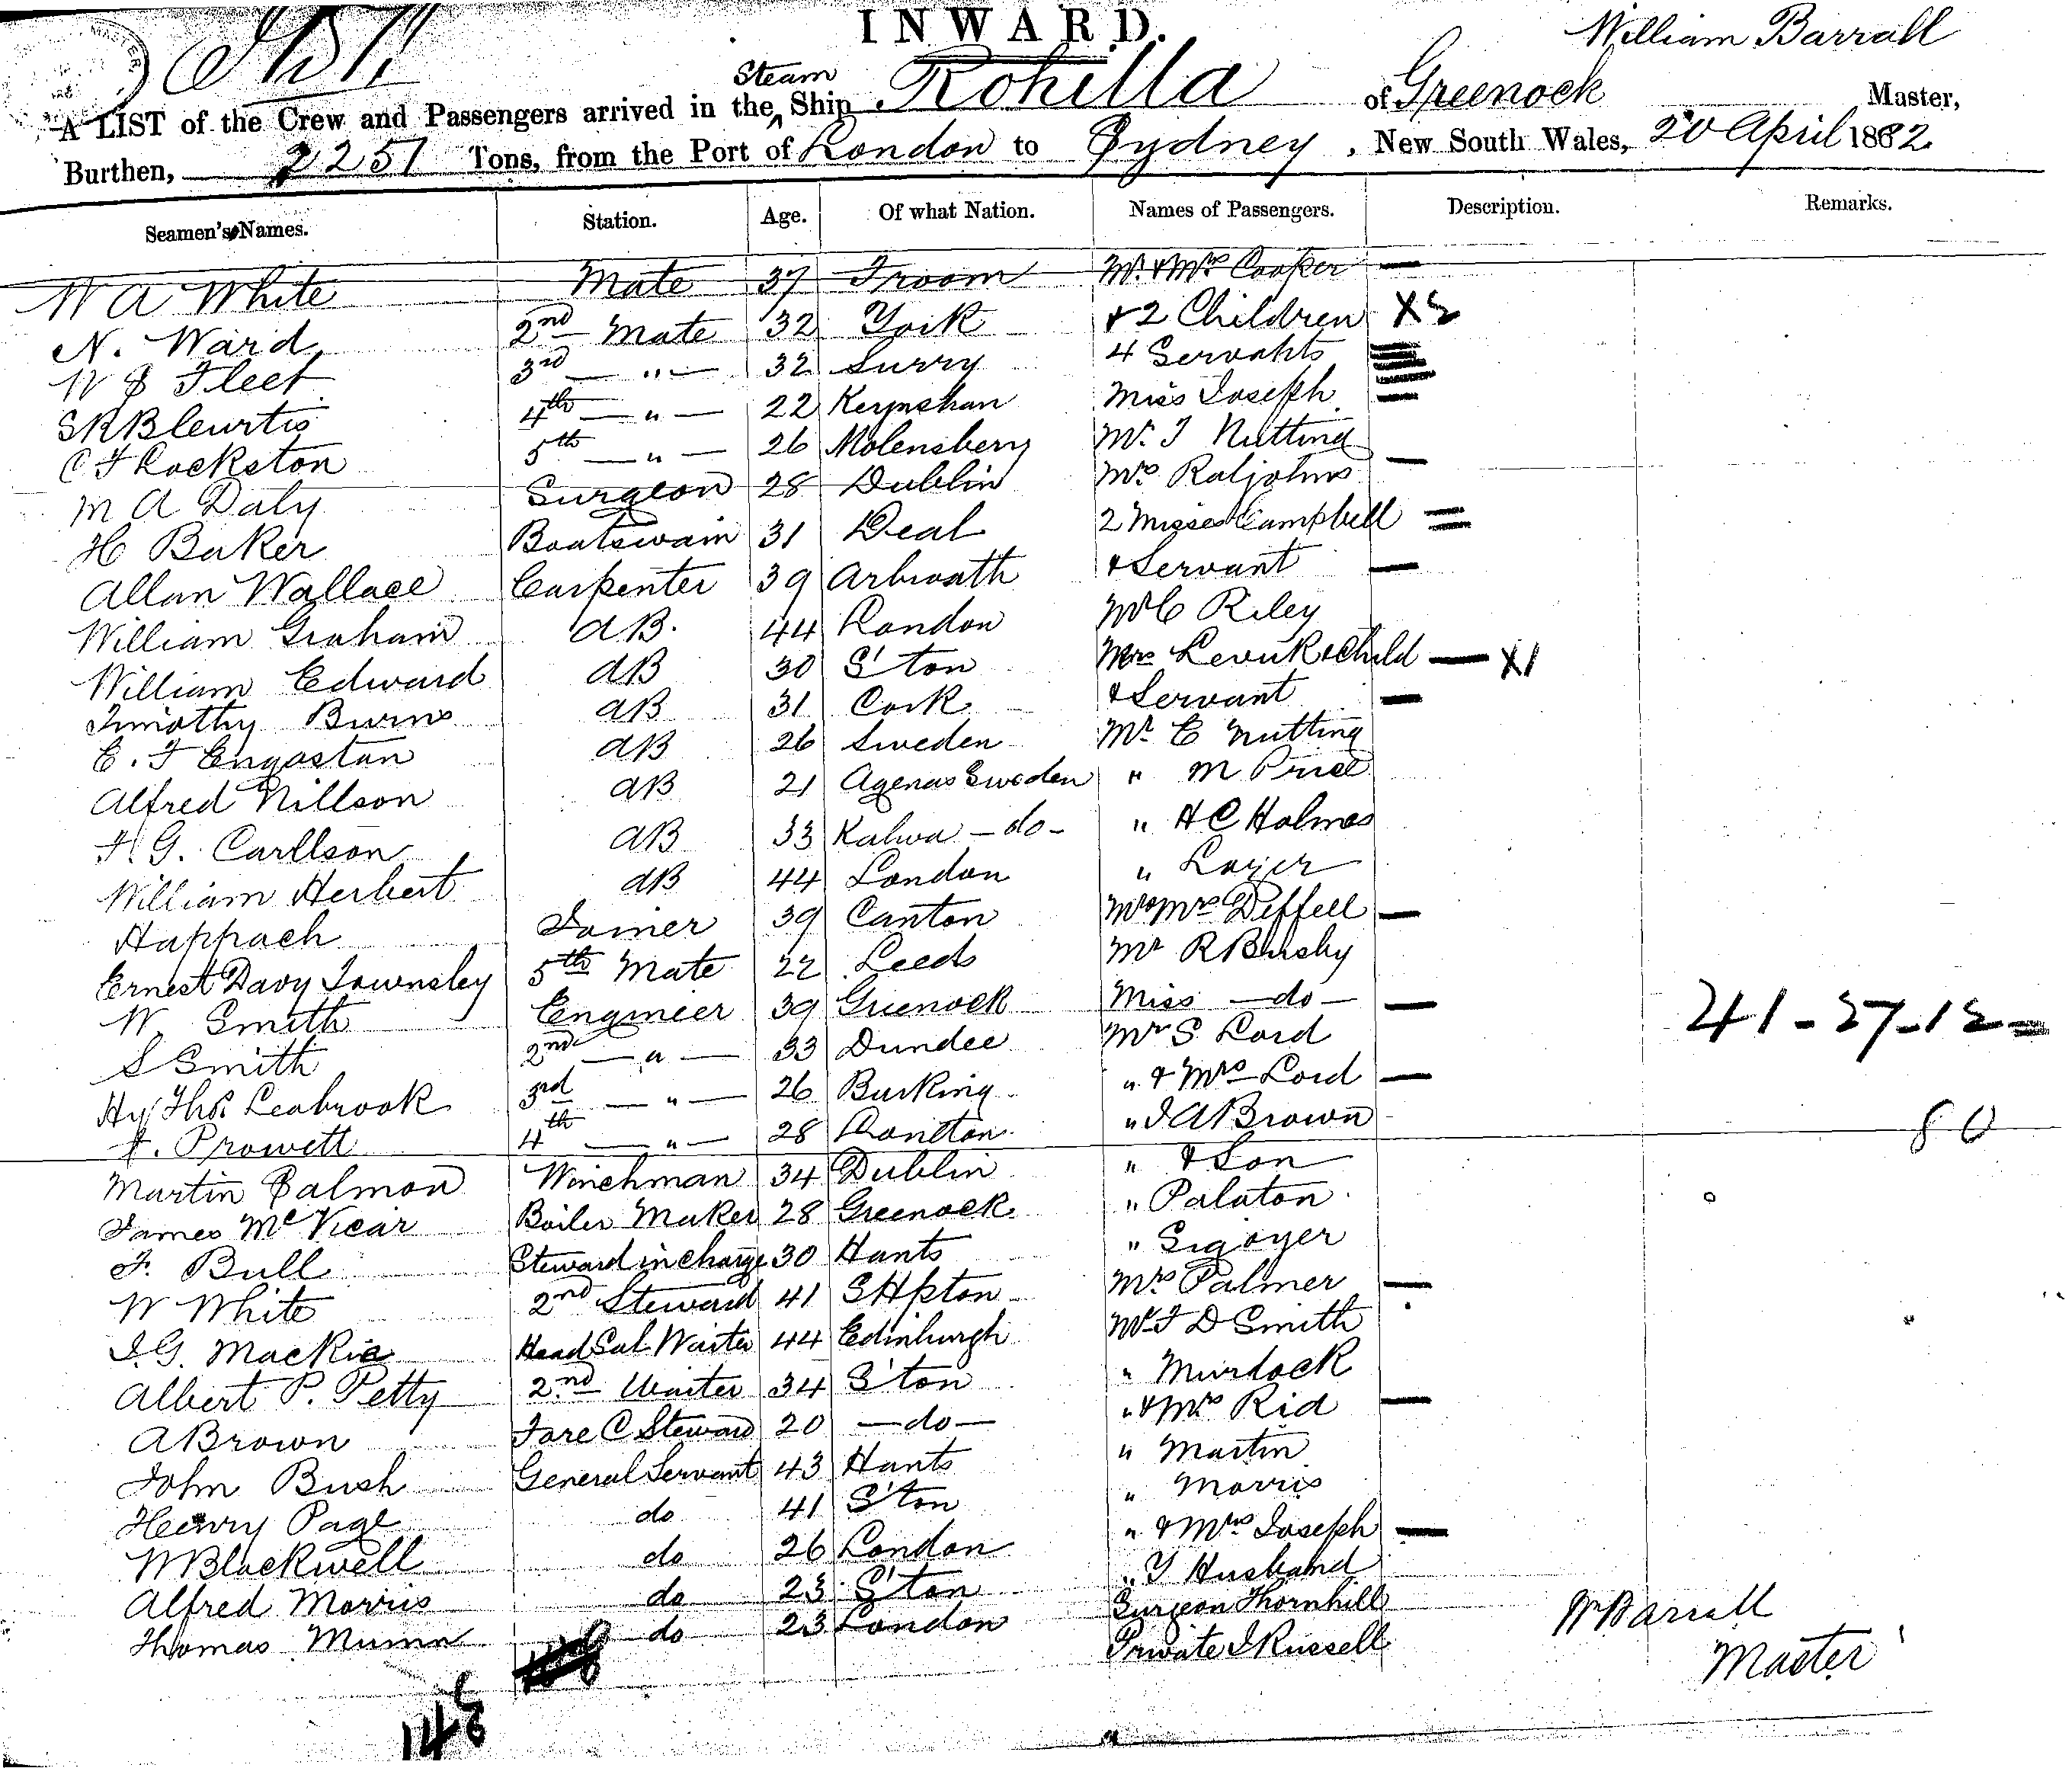 INWARD.
William Barrall
A LIST of the Crew and Passengers arrived in the Steam Ship Rohilla of Greenock Master,
Burthen, 2251 Tons, from the Port of London to Sydney, New South Wales, 20 April 1882
Seamen's Names. Station. Age. Of what Nation. Names of Passengers. Description. Remarks.
W A White Mate 37 Froom Mr. & Mrs Cooper —
N. Ward 2nd Mate 32 York & 2 Children X2
W Fleet 3rd — " — 32 Surry 4 Servants
4th — " — 22 Keynshan Miss Joseph —
C F Lockston 5th — " — 26 Molensbery Mr. J Nutting
M A Daly Surgeon 28 Dublin Mrs Raljohns —
H Baker Boatswain 31 Deal 2 Misses Campbell =
Allan Wallace Carpenter 39 Arbroath & Servant —
William Graham AB. 44 London Mr C Riley
William Edward AB 30 S'ton Mrs Levuk & Child — X1
Timothy Burns AB 31 Cork & Servant —
E. F Engastan AB 26 Sweden Mr E Nutting
Alfred Nillson AB 21 Agenas Sweden " M Price
F. G. Carllson AB 33 Kalwa — do — " H C Holmes
William Herbert AB 44 London " Lazer
Happach Joiner 39 Canton Mr & Mrs Deffell —
Ernest Davy Townsley 5th Mate 22 Leeds Mr R Busby
W. Smith Engineer 39 Greenock Miss — do — —
S Smith 2nd — " — 33 Dundee Mr S Lord
41 - 27 - 12 =
Hy Thos Leabrook 3rd — " — 26 Barking " & Mrs Lord —
F. Prowett 4th — " — 28 London " J A Brown
80
Martin Salmon Winchman 34 Dublin " & Son
James McVicar Boiler Maker 28 Greenock " Palaton
F. Bull Steward in charge 30 Hants " Sigoyer
W White 2nd Steward 41 SHpton Mrs Palmer —
J. G. Mackie Head Sal Waiter 44 Edinburgh Mr F D Smith
Albert P. Petty 2nd Waiter 34 S'ton " Murdock
A Brown Fore C Steward 20 — do — " & Mrs Rid —
John Bush General Servant 43 Hants " Martin
Henry Page do 41 S'ton " Morris
W Blackwell do 26 London " & Mrs Joseph —
Alfred Morris do 23 S'ton " Y Husband
Thomas Munn do 23 London Surgeon Thornhill
Private J Russell
Wm Barrall
Master
148